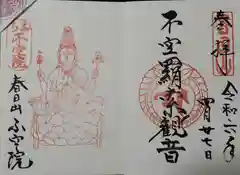 奉拝
令和六年
四月廿七日
不空羂索観音
春日山不空院